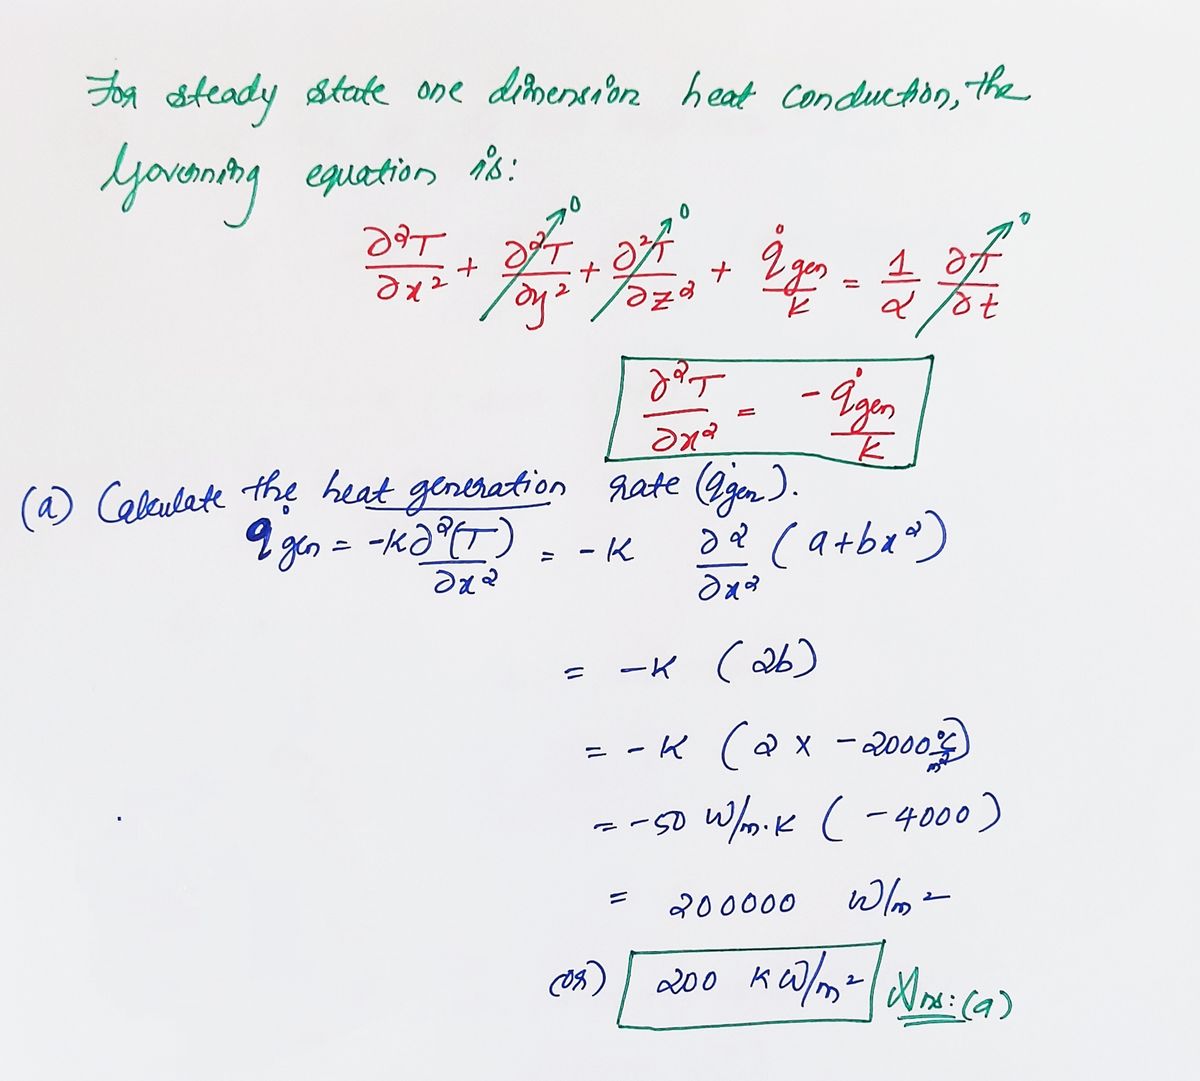 For steady state one dimension heat conduction, the
Governing equation is:
∂²T/∂x² + ∂²T/∂y² →0 + ∂²T/∂z² →0 + q̇gen/k = 1/α ∂T/∂t →0
∂²T/∂x² = -q̇gen/k
(a) Calculate the heat generation rate (q̇gen).
q̇gen = -k∂²(T)/∂x² = -k ∂²/∂x² (a+bx²)
= -k (2b)
= -k (2 x -2000 °C/m²)
= -50 W/m.k (-4000)
= 200000 W/m²
(or) 200 KW/m² Ans:(a)